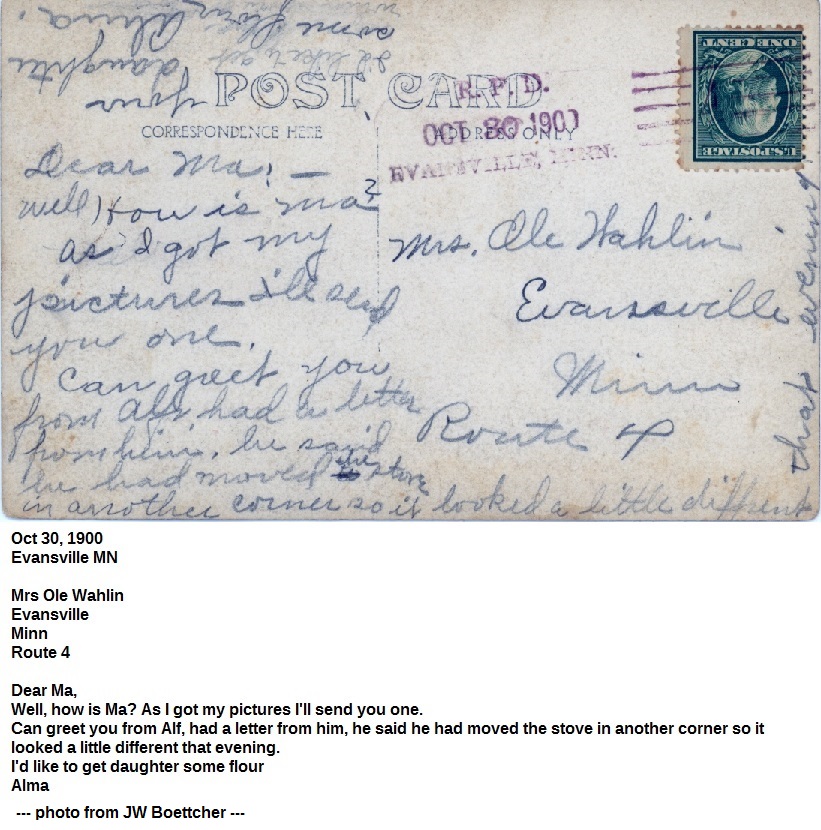 POST CARD
CORRESPONDENCE HERE
ADDRESS ONLY
R. F. D.
OCT 30 190
EVANSVILLE, MINN.
U.S. POSTAGE
ONE CENT
Dear Ma! —
well, how is ma?
as I got my
pictures I'll send
you one.
Can greet you
from Alf, had a letter
from him, he said
he had moved the stove
in another corner so it looked a little different
that evening
I'd like to get
some
your daughter
Alma.
Mrs. Ole Wahlin
Evansville
Minn
Route 4
Oct 30, 1900
Evansville MN
Mrs Ole Wahlin
Evansville
Minn
Route 4
Dear Ma,
Well, how is Ma? As I got my pictures I'll send you one.
Can greet you from Alf, had a letter from him, he said he had moved the stove in another corner so it
looked a little different that evening.
I'd like to get daughter some flour
Alma
--- photo from JW Boettcher ---